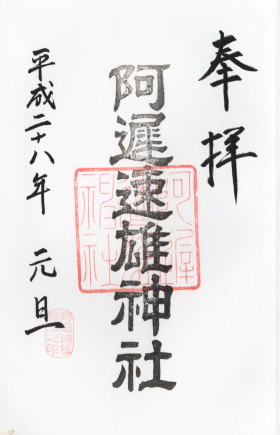 奉拝
阿遅速雄神社
平成二十八年 元旦